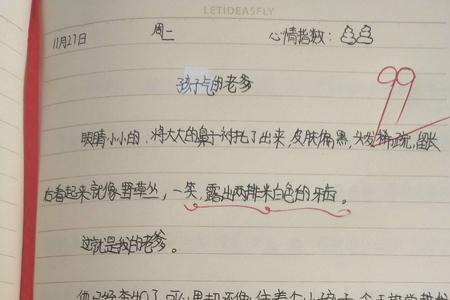 LETIDEASFLY
11月27日 周二 心情指数:
99
孩子气的老爹
眼睛小小的，将大大的鼻子衬托了出来，皮肤偏黑，头发稀疏，留长
后看起来就像野草丛，一笑，露出两排米白色的牙齿。
这就是我的老爹。